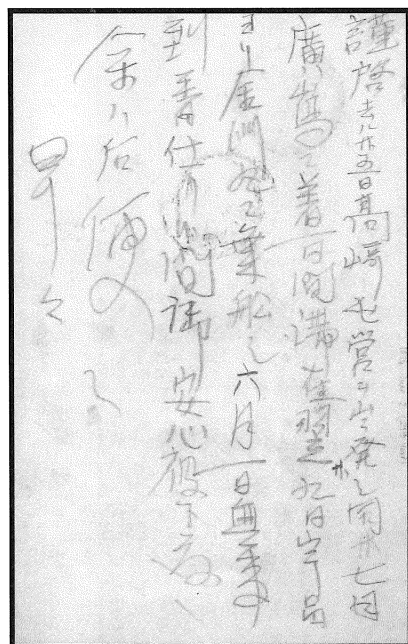 謹啓去ル廿五日高崎屯営ヨリ出発シ同廿七日
廣島ニ着一日間滞在翌廿九日宇品
ヨリ金州丸ニ乗船シ六月一日無事
到着仕候間御安心被下度候
余ハ后便ニ
早々